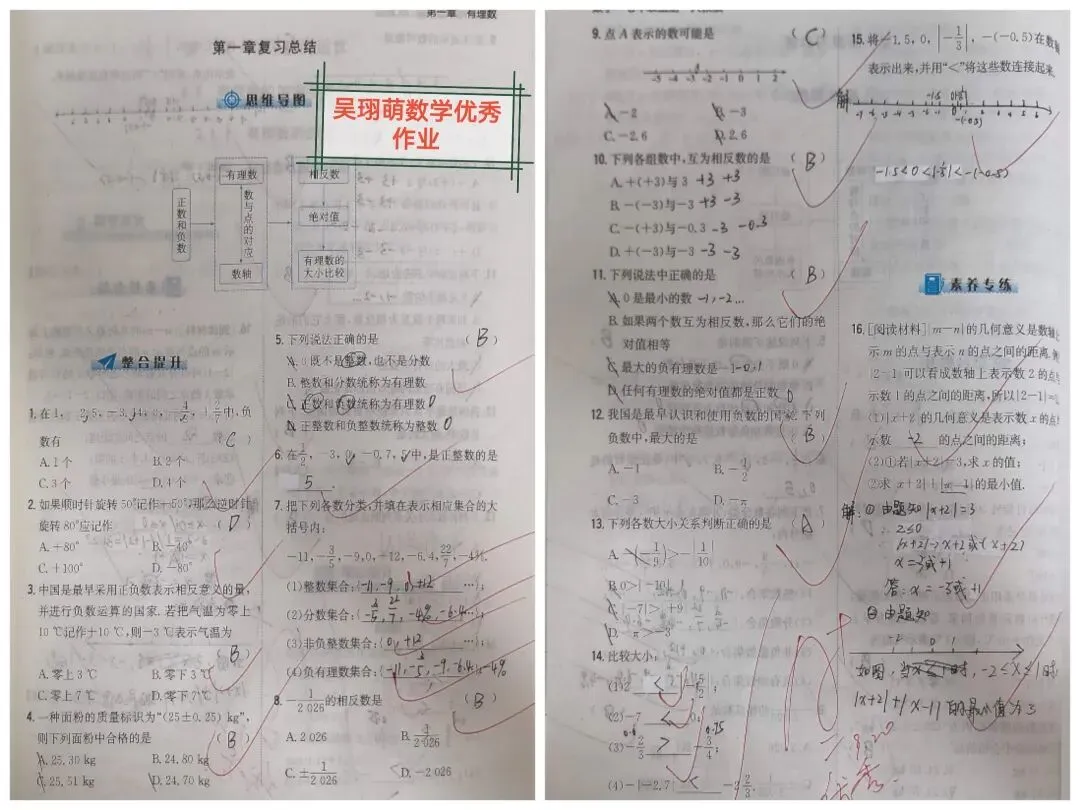 第一章 有理数
第一章复习总结
思维导图
吴珝萌数学优秀
作业
正数和负数
有理数
数与点的对应
数轴
相反数
绝对值
有理数的
大小比较
整合提升
数有 C
A.1个 B.2个
C.3个 D.4个
2.如果顺时针旋转50°记作+50°,那么逆时针
旋转80°应记作 (D)
A.+80° B.-40°
C.+100° D.-80°
3.中国是最早采用正负数表示相反意义的量,
并进行负数运算的国家.若把气温为零上
10℃记作+10℃,则-3℃表示气温为
(B)
A.零上3℃ B.零下3℃
C.零上7℃ D.零下7℃
4.一种面粉的质量标识为“(25±0.25) kg”,
则下列面粉中合格的是 (B)
A.25.30 kg B.24.80 kg
C.25.51 kg D.24.70 kg
5.下列说法正确的是 (B)
A.0既不是整数,也不是分数
B.整数和分数统称为有理数
C.正数和负数统称为有理数 0
D.正整数和负整数统称为整数 0
6.在 -3, 0, -0.7, 5中,是正整数的是
5 .
7.把下列各数分类,并填在表示相应集合的大
括号内:
-11,-3/5,-9,0,+12,-6.4,22/7,-4%.
(1)整数集合:{-11,-9,0,+12 …};
(2)分数集合:{ 22/7,-4%,-6.4…};
(3)非负整数集合:{0,+12 …};
(4)负有理数集合:{-11, -9,-6.4, -4%
8.-1/2026的相反数是 (B)
A.2 026 B.1/2026
C.±1/2026 D.-2 026
9.点A表示的数可能是 (C)
-5 -4 -3 -2 -1 0 1 2
A.-2 B.-3
C.-2.6 D.2.6
10.下列各组数中,互为相反数的是 (B)
A.+(+3)与3 +3 +3
B.-(-3)与-3 +3 -3
C.-(+3)与-0.3 -3 -0.3
D.+(-3)与-3 -3 -3
11.下列说法中正确的是 (B)
A.0是最小的数 -1,-2…
B.如果两个数互为相反数,那么它们的绝
对值相等
C.最大的负有理数是-1 -0.1
D.任何有理数的绝对值都是正数 0
12.我国是最早认识和使用负数的国家.下列
负数中,最大的是 (B)
A.-1 B.-1/2
C.-3 D.-π
13.下列各数大小关系判断正确的是 (A)
A.-(-1/9)>-|1/10|
B.0>|-10|
C.|-7|>|+9|
D.-π>-3
14.比较大小:
(2)-7 < 0
0.6 0.75
(3)-2/3 > -3/4
(4)-|-2.7| < -2 2/3
15.将-1.5,0,|-1/3|,-(-0.5)在数轴
表示出来,并用“<”将这些数连接起来.
解
-1.5<0<|-1/3|<-(-0.5)
素养专练
16.[阅读材料]|m-n|的几何意义是数轴
示m的点与表示n的点之间的距离.
|2-1|可以看成数轴上表示数2的点
示数1的点之间的距离,所以|2-1|=
(1)|x+2|的几何意义是表示数x的点
示数 -2 的点之间的距离;
(2)①若|x+2|=3,求x的值;
②求|x+2|+|x-1|的最小值.
解:①由题知|x+2|=3
答:x=-5或+1
②由题知
-2 0 1
如图,当 时,-2≤x≤1时
|x+2|+|x-1|的最小值为3
9.20
优秀